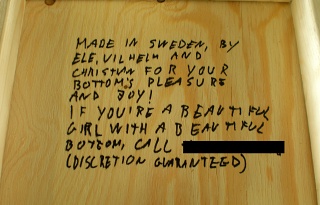 MADE IN SWEDEN, BY
ELE, VILHELM AND
CHRISTIAN FOR YOUR
BOTTOM'S PLEASURE
AND JOY!
IF YOU'RE A BEAUTIFUL
GIRL WITH A BEAUTIFUL
BOTTOM, CALL
(DISCRETION GUARANTEED)